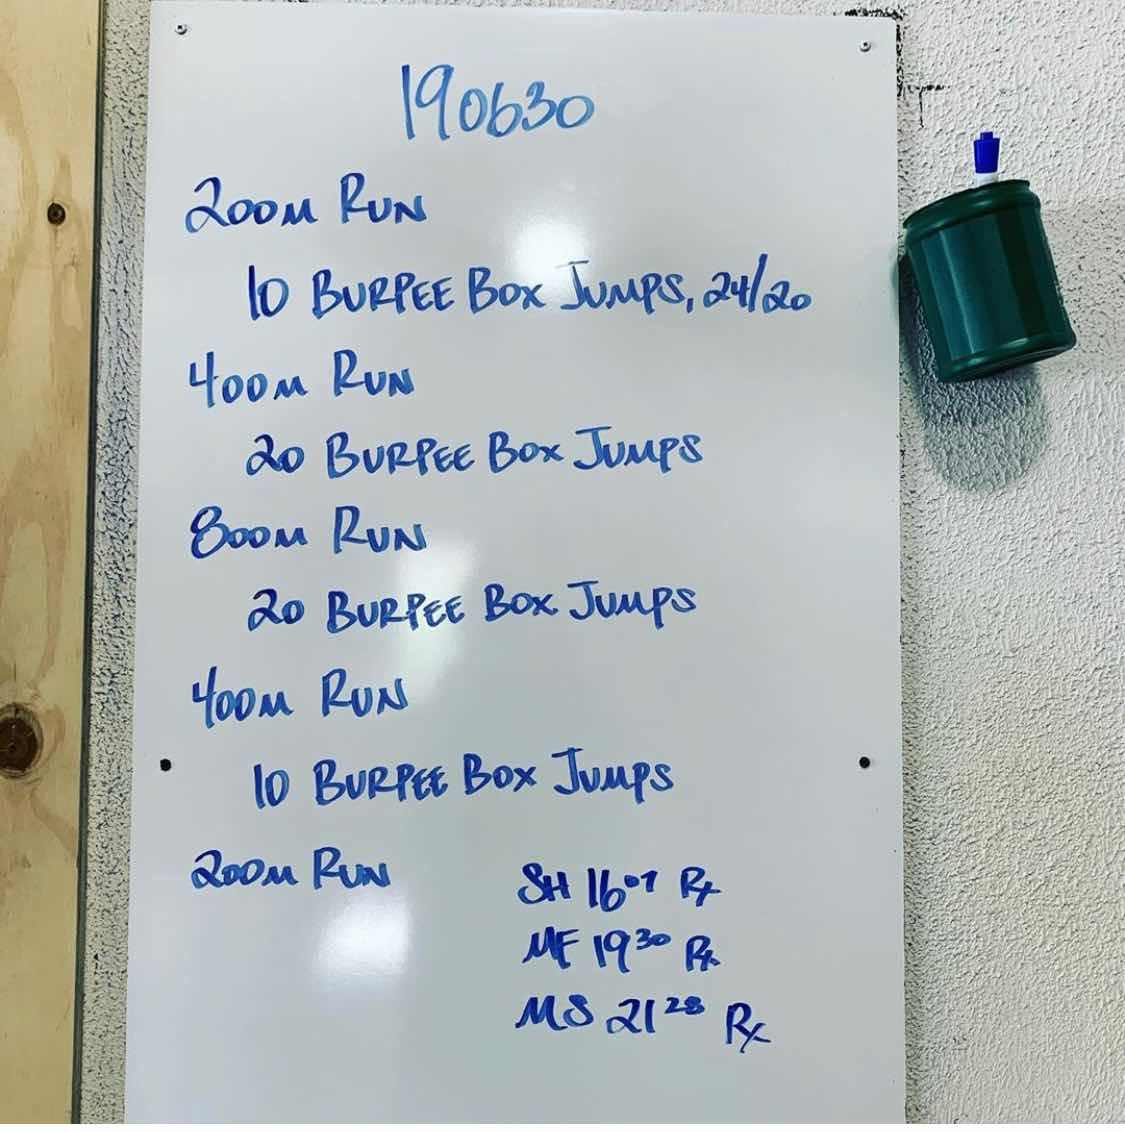 190630
200M RUN
10 BURPEE BOX JUMPS, 24/20
400M RUN
20 BURPEE BOX JUMPS
800M RUN
20 BURPEE BOX JUMPS
400M RUN
10 BURPEE BOX JUMPS
200M RUN
SH 16⁰⁷ Rx
MF 19³⁰ Rx
MS 21²⁸ Rx